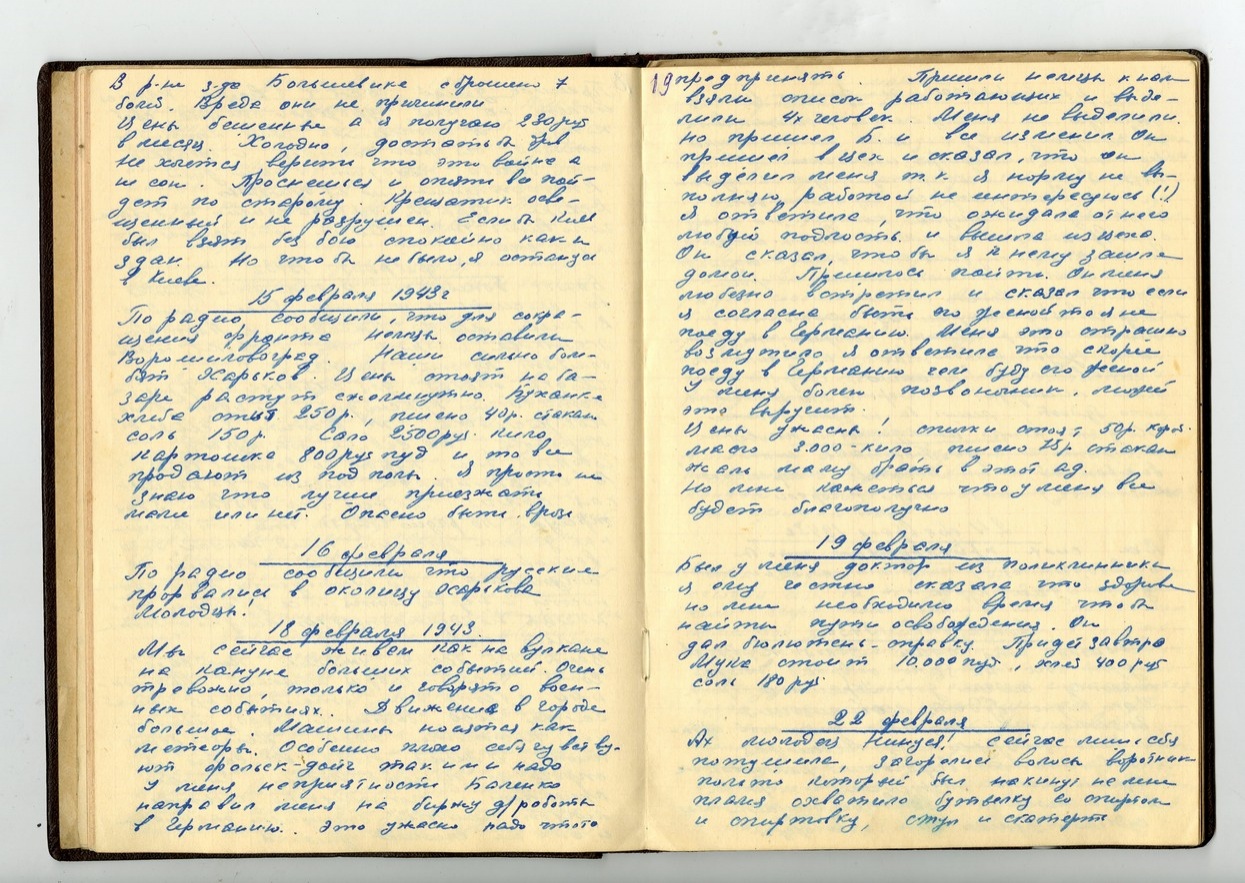 В р-не з-да Большевик сброшено 7
бомб. Вреда они не причинили
Цены бешенные а я получаю 230 руб
в месяц. Холодно, достать б дров
не хочется верить что это война а
не сон. Проснешься и опять все пой-
дет по старому. Крещатик осве-
щенный и не разрушен. Если бы Киев
был взят без бою спокойно как и
здан. Но что бы не было, я останусь
в Киеве.
15 февраля 1943 г
По радио сообщили, что для сокра-
щения фронта немцы оставили
Ворошиловоград. Наши сильно бом-
бят Харьков. Цены стоят на ба-
заре растут ежеминутно. Буханка
хлеба 250 р., пшено 40 р. стакан
соль 150 р. Сало 2500 руб. кило
картошка 800 руб пуд и то все
продают из под полы. Я просто не
знаю что лучше приезжать
маме или нет. Опасно быть врозь
16 февраля
По радио сообщили что русские
прорвались в околицу Харькова
Молодцы!
18 февраля 1943.
Мы сейчас живем как на вулкане
на кануне больших событий. Очень
тревожно, только и говорят о воен-
ных событиях. Движение в городе
большое. Машины носятся как
метеоры. Особенно плохо себя чувству-
ют фольск-дойч так им и надо
У меня неприятности Баленко
направил меня на биржу д/работы
в Германию. Это ужасно надо что то
19 предпринять. Пришли немцы к нам
взяли список работающих и выде-
лили 4х человек. Меня не выделили.
но пришел Б. и все изменил Он
пришел в цех и сказал, что он
выделил меня т.к. я норму не вы-
полняю, работой не интересуюсь (!)
Я ответила, что ожидала от него
любую подлость и вышла из цеха.
Он сказал, что бы я к нему зашла
домой. Пришлось пойти. Он меня
любезно встретил и сказал что если
я согласна быть его женой то я не
поеду в Германию. Меня это страшно
возмутило я ответила что скорее
поеду в Германию чем буду его женой
У меня болен позвоночник, может
это выручит.
Цены ужасны! спички стоят 50 р. короб.
масло 3.000 - кило, пшено 75 р стакан
жаль маму брать в этот ад.
Но мне кажеться что у меня все
будет благополучно
19 февраля
Был у меня доктор из поликлинники
я ему честно сказала что здорова
но мне необходимо время что бы
найти пути освобождения. Он
дал бюлютень-справку. Придет завтра
Мука стоит 10.000 пуд, хлеб 400 руб
соль 180 руб.
22 февраля
Ах молодец Нинуся! Сейчас меня, себя
потушила, загорелись волосы воротник
пальто который был накинут на мне
пламя охватило бутылку со спиртом
и спиртовку, стул и скатерть